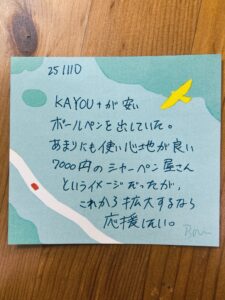 251110
KAYOU+が安い
ボールペンを出していた。
あまりにも使い心地が良い
7000円のシャーペン屋さん
というイメージだったが、
これから拡大するなら
応援したい。